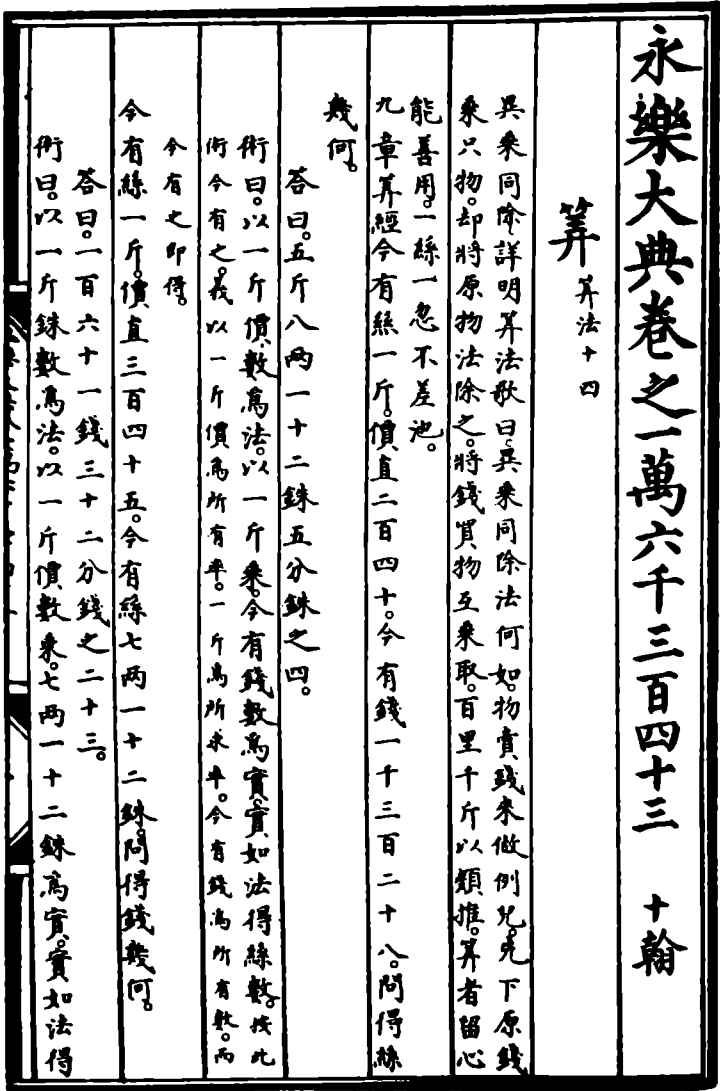 永樂大典卷之一萬六千三百四十三 十翰
筭 筭法十四
異乘同除詳明筭法歌曰。異乘同除法何如。物賣錢來做例兒。先下原錢
乘只物。却將原物法除之。將錢買物互乘取。百里千斤以類推。筭者留心
能善用。一絲一忽不差池。
九章筭經今有絲一斤。價直二百四十。今有錢一千三百二十八。問得絲
幾何。
答曰。五斤八兩一十二銖五分銖之四。
術曰。以一斤價數爲法。以一斤乘。今有錢數爲實。實如法得絲數。按此
術今有之。義以一斤價爲所有率。一斤爲所求率。今有錢爲所有數。而
今有之即得。
今有絲一斤。價直三百四十五。今有絲七兩一十二銖。問得錢幾何。
答曰。一百六十一錢三十二分錢之二十三。
術曰。以一斤銖數爲法。以一斤價數乘。七兩一十二銖爲實。實如法得